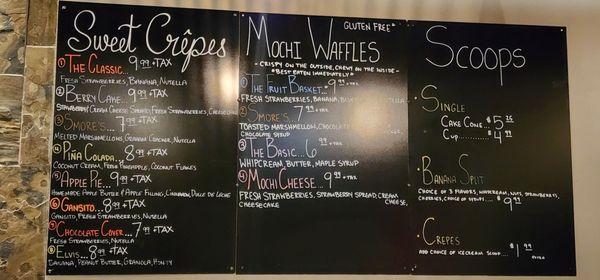 Sweet Crêpes
① The Classic... 9.99 +TAX
Fresh Strawberries, Banana, Nutella
② Berry Cake... 9.99 +TAX
Strawberry Cream Cheese Spread, Fresh Strawberries, Cheesecake
③ S'mores... 7.99 +TAX
Melted Marshmellows, Graham Cracker, Nutella
④ Piña Colada.. 8.99 +TAX
Coconut Cream, Fresh Pineapple, Coconut Flakes
⑤ Apple Pie... 9.99 +TAX
Homemade Apple Butter & Apple Filling, Cinnamon, Dulce de Leche
⑥ Gansito... 8.99 +TAX
Gansito, Fresh Strawberries, Nutella
⑦ Chocolate Cover... 7.99 +TAX
Fresh Strawberries, Nutella
⑧ Elvis... 8.99 +TAX
Banana, Peanut Butter, Granola, Honey
Gluten Free*
Mochi Waffles
- Crispy on the outside, chewy on the inside -
*Best eaten immediately*
① The Fruit Basket... 9.99 +TAX
Fresh Strawberries, Banana, Nutella
② S'mores... 7.99 +TAX
Toasted Marshmellow, Chocolate
Chocolate Syrup
③ The Basic... 6.99 +TAX
Whipcream, Butter, Maple Syrup
④ Mochi Cheese... 9.99 +TAX
Fresh Strawberries, Strawberry Spread, Cream Cheese,
Cheesecake
Scoops
Single
Cake Cone... $5
Cup........... $4.99
Banana Split
Choice of 3 flavors, whipcream, nuts, strawberries,
cherries, choice of syrups.... $9.99
Crepes
Add choice of icecream scoop... $1.99
extra